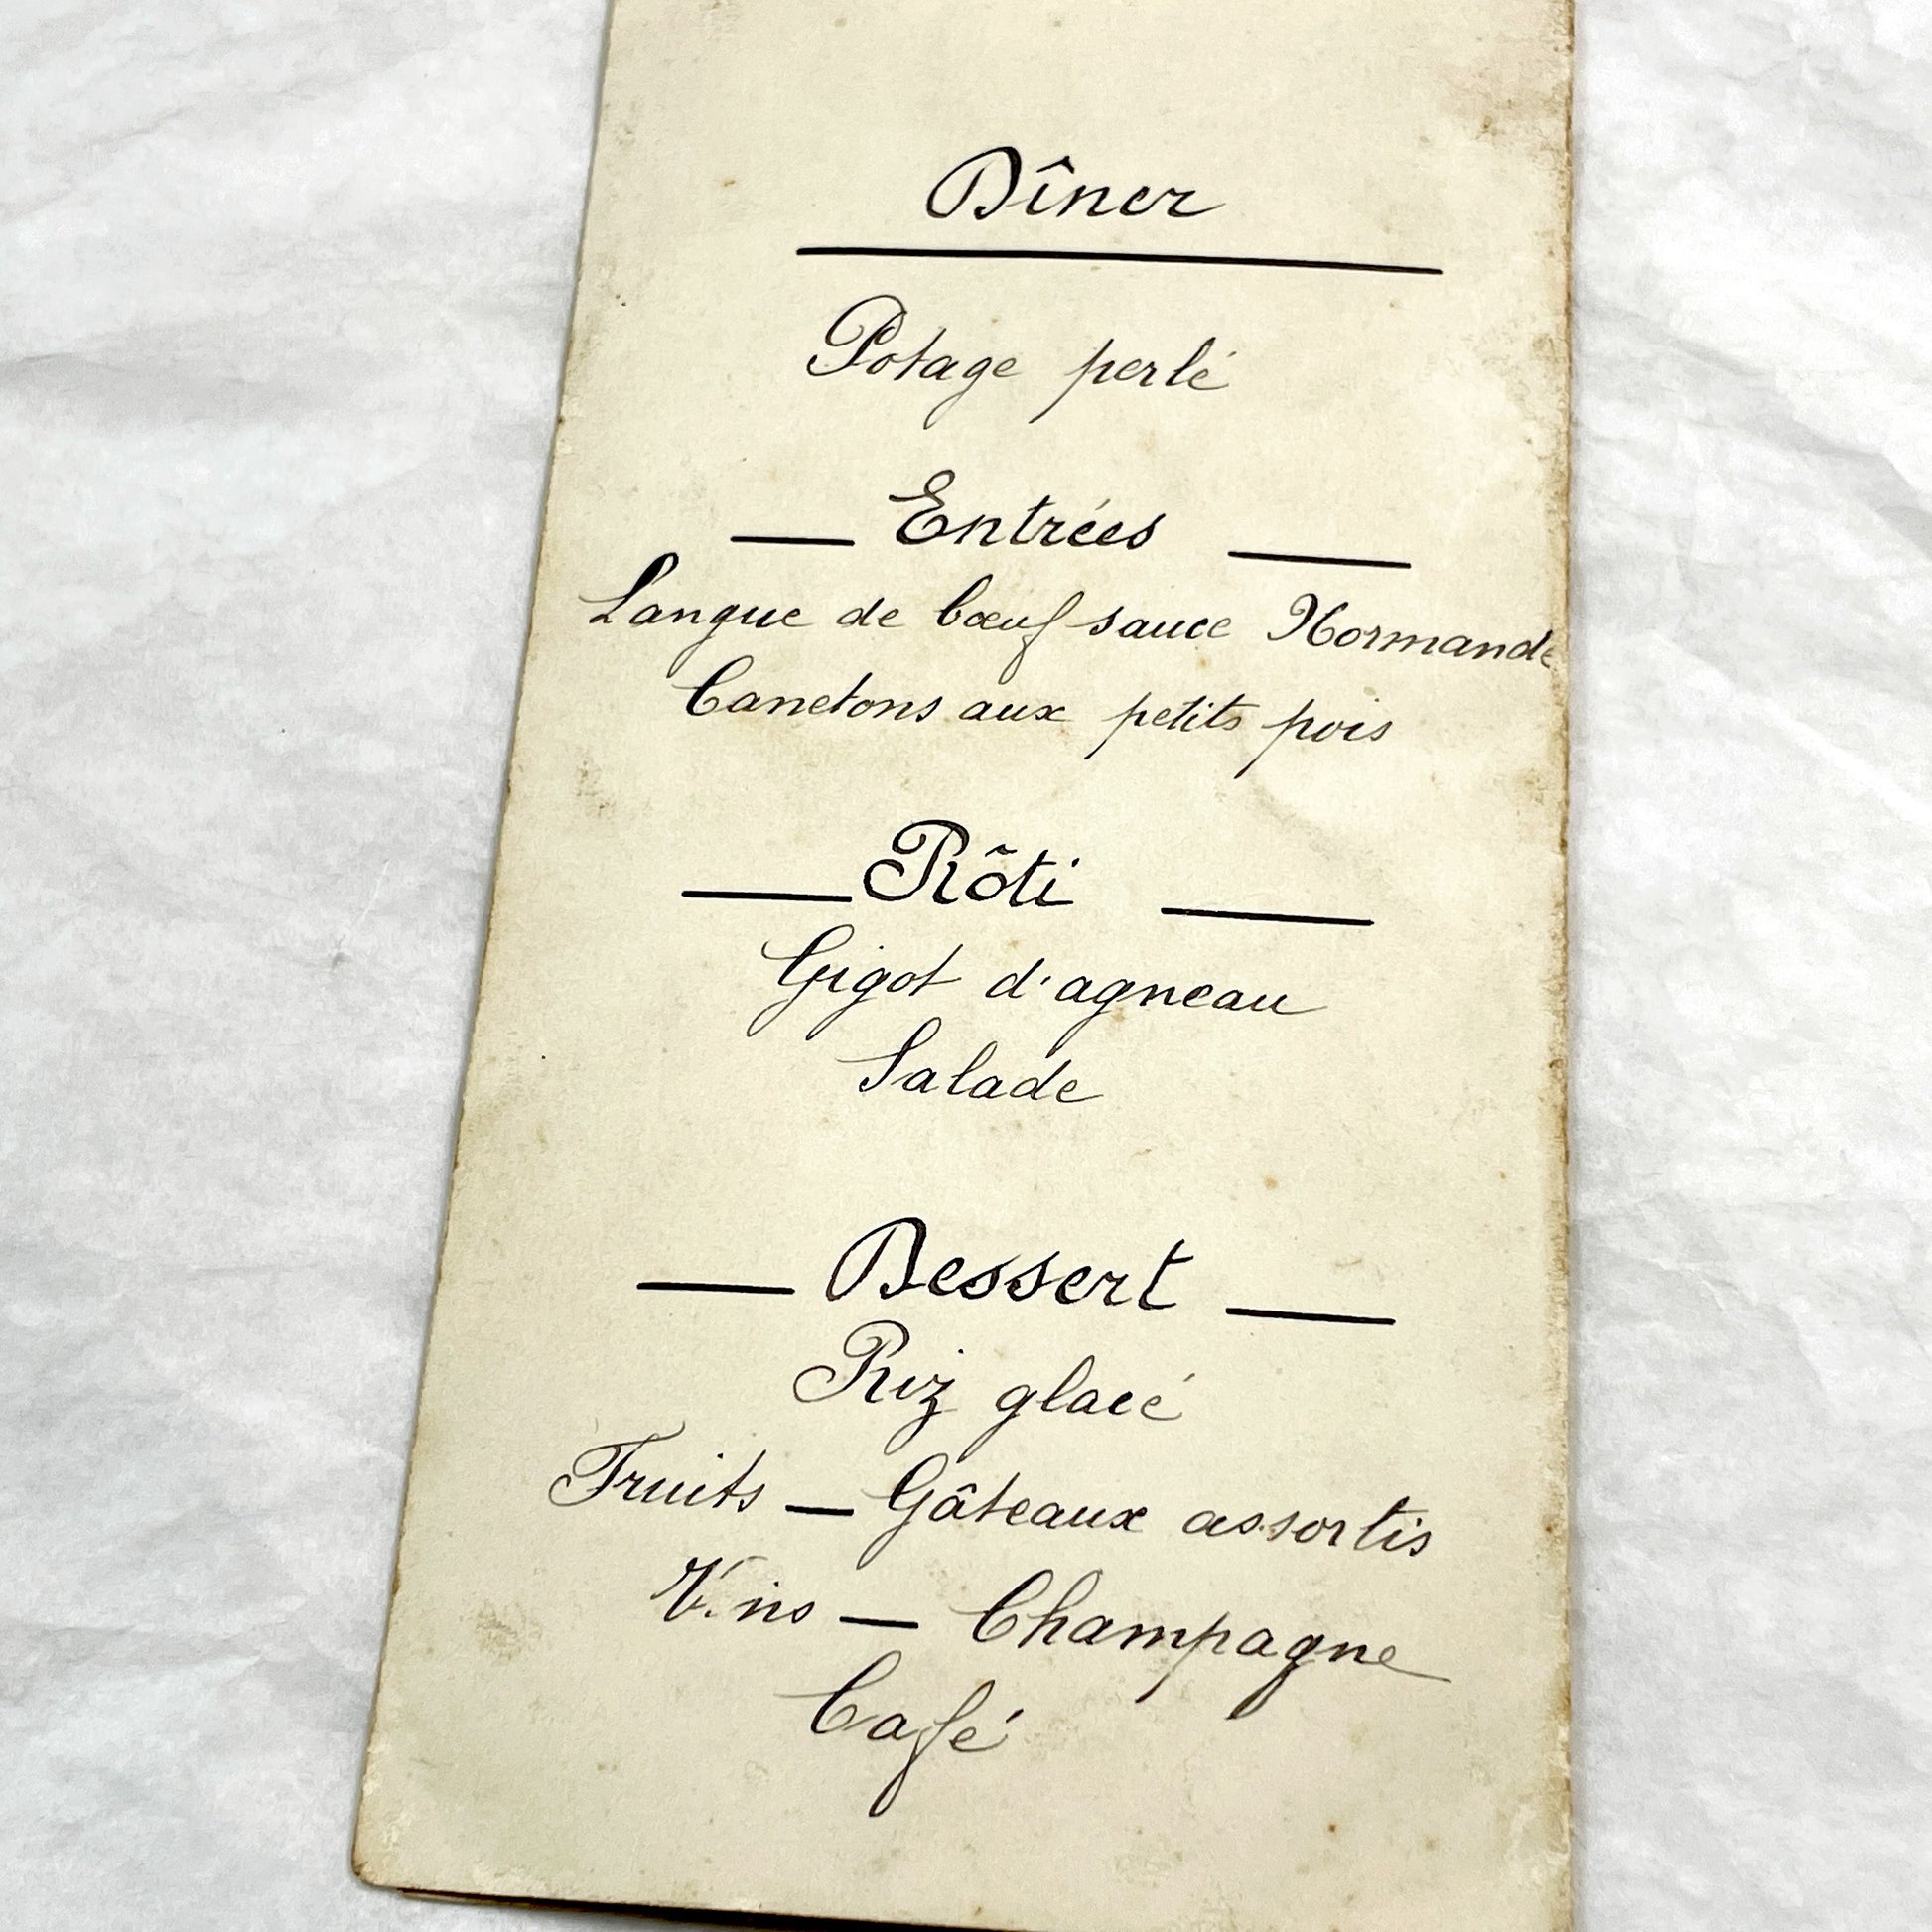 Dîner
Potage perlé
— Entrées —
Langue de bœuf sauce Normande
Canetons aux petits pois
— Rôti —
Gigot d'agneau
Salade
— Dessert —
Riz glacé
Fruits — Gâteaux assortis
Vins — Champagne
Café